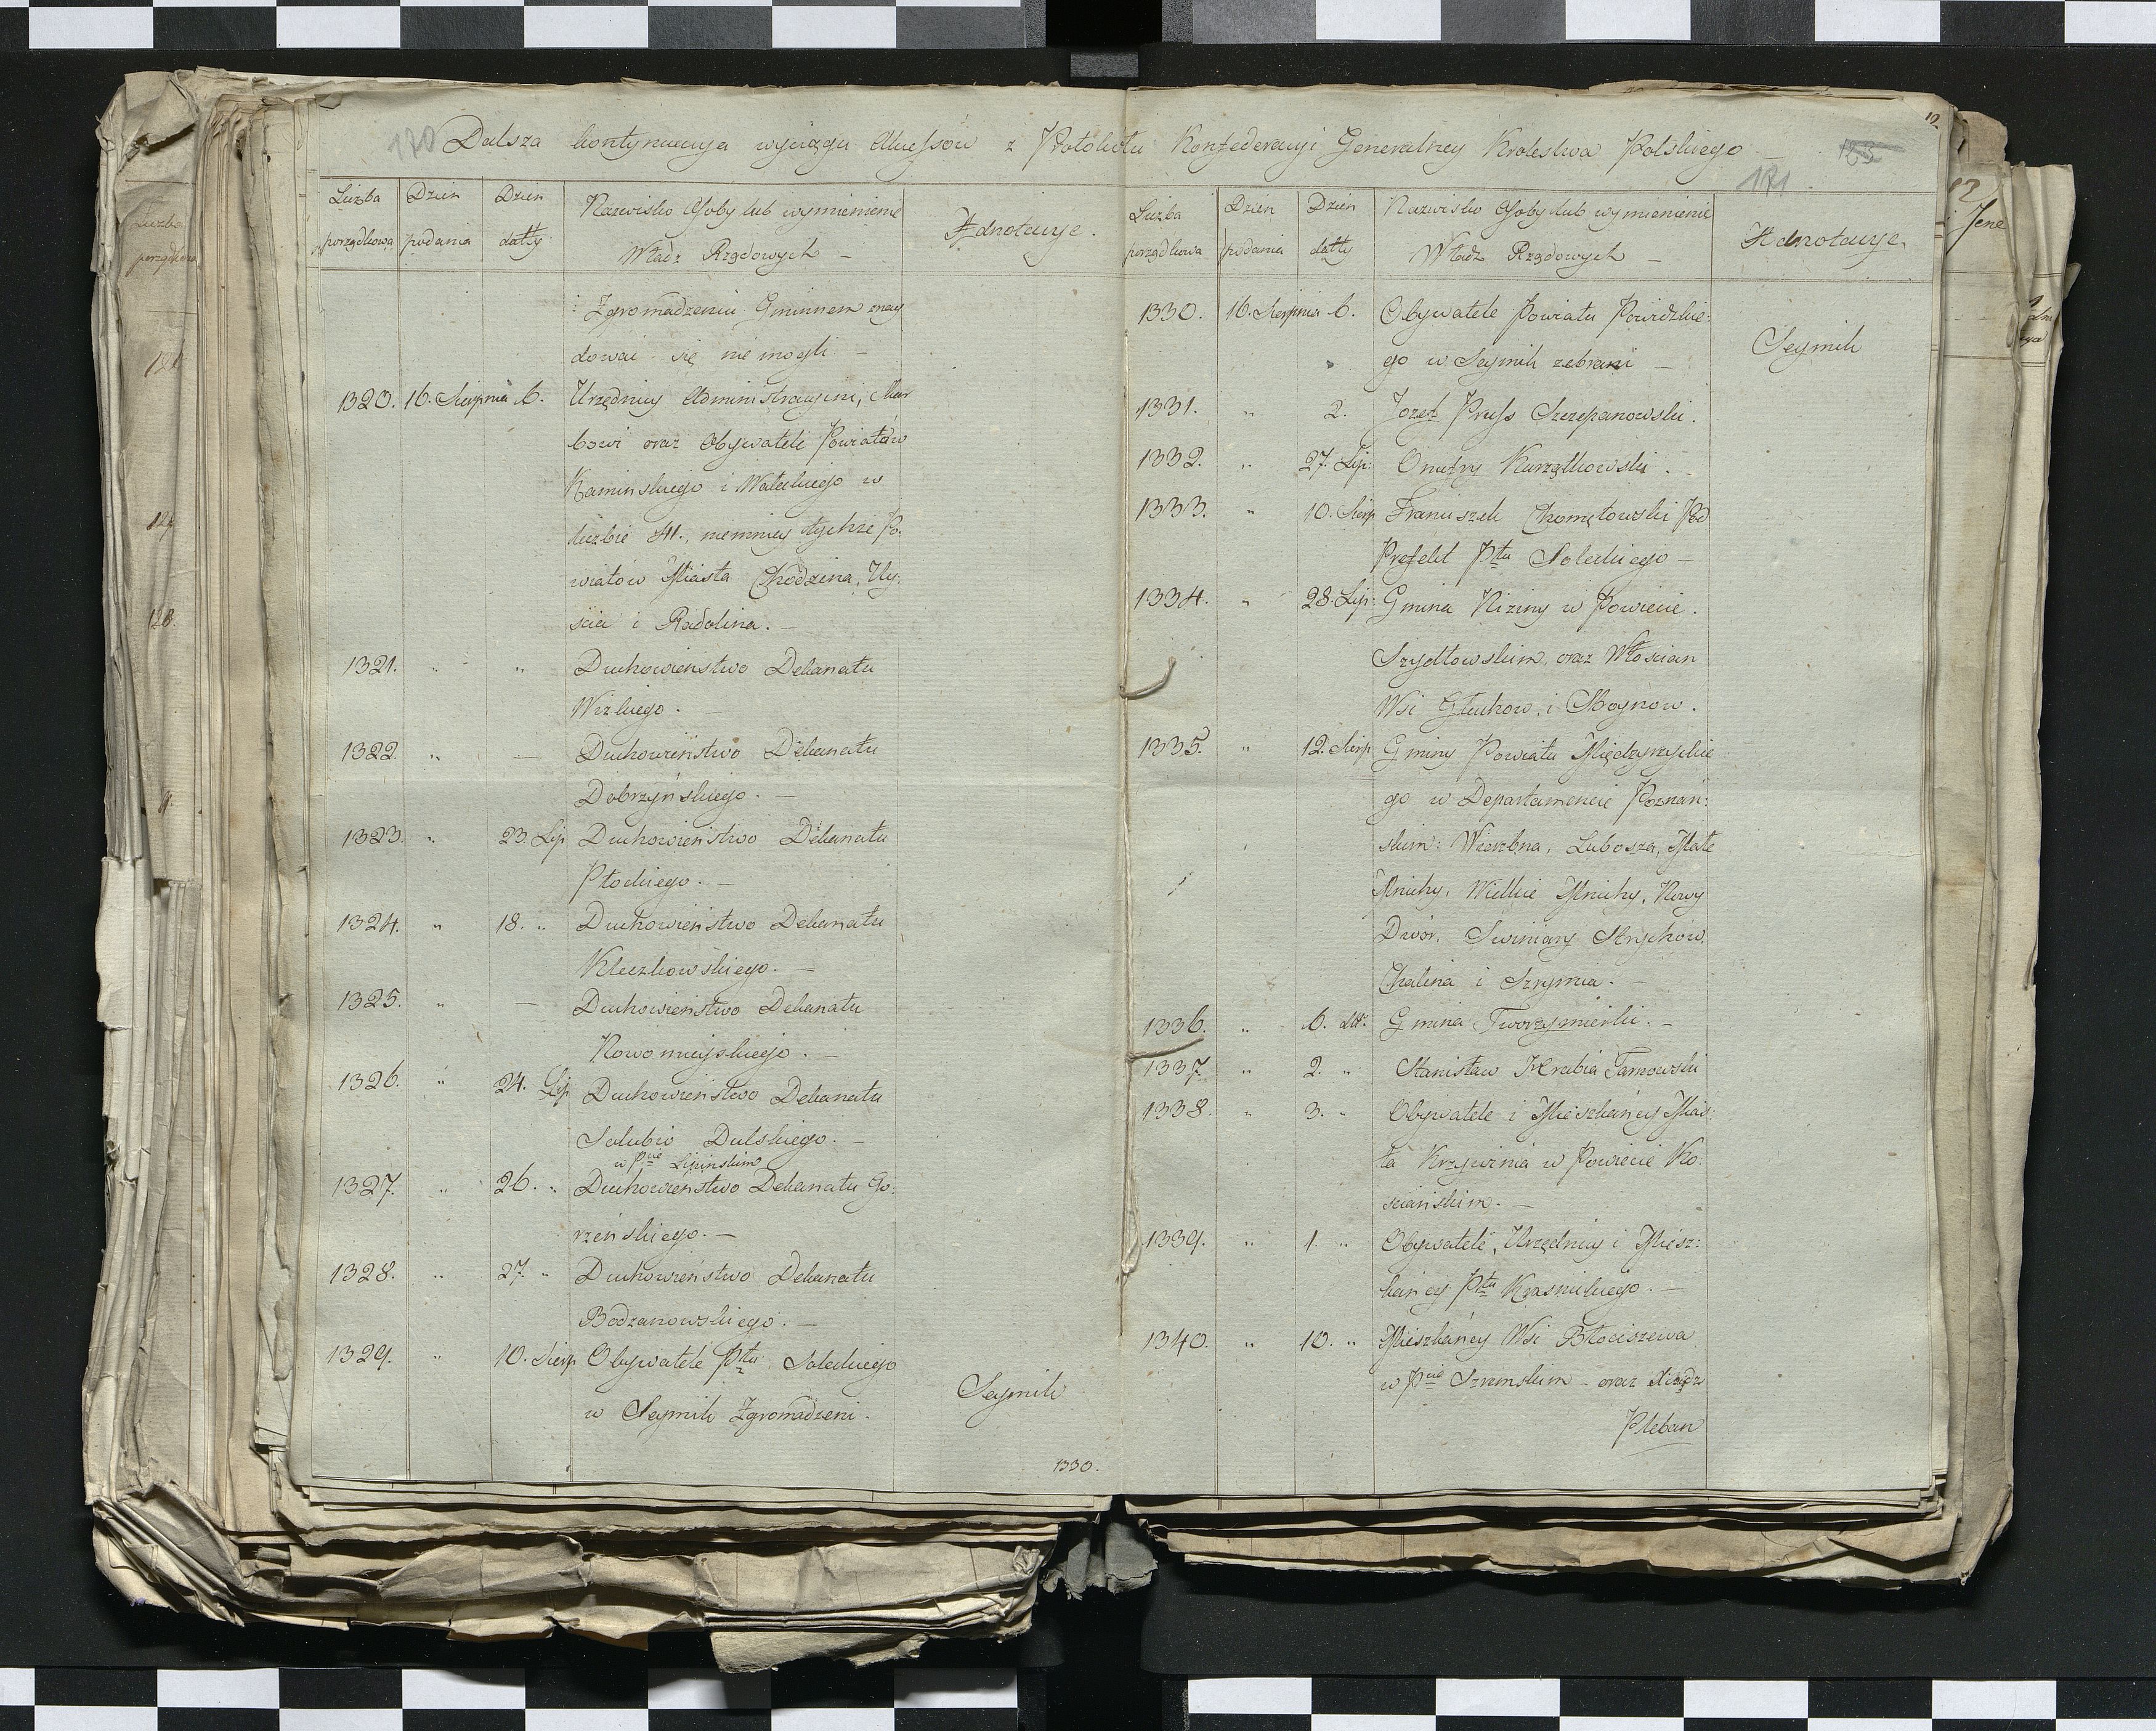 170 Dalsza kontynuacya wyciągu Akcessów z Protokułu Konfederacyi Generalney Krolestwa Polskiego —
10
171
Liczba porządkowa
Dzień podania
Dzień datty
Nazwisko Osoby lub wymienienie Władz Rządowych —
Adnotacye.
Zgromadzeniu Gminnem znay
dować się nie mogli —
1320. 16. Sierpnia 6. Urzędnicy Administracyini, Skar
bowi oraz Obywatele Powiatów
Kaminskiego i Wałeckiego w
liczbie 41., niemniey tychże Po:
wiatów Miasta Chodzina, Uy:
ścia i Radolina. —
1321. " " Duchowieństwo Dekanatu
Wizkiego. —
1322. " — Duchowieństwo Dekanatu
Dobrzyńskiego. —
1323. " 23. Lip Duchowieństwo Dekanatu
Płockiego. —
1324. " 18. " Duchowieństwo Dekanatu
Kleczkowskiego. —
1325. " — Duchowieństwo Dekanatu
Nowomieyskiego. —
1326. " 24. Lip Duchowieństwo Dekanatu
Golubio Dulskiego. —
w Pcie Lipinskim
1327. " 26. " Duchowieństwo Dekanatu Go:
rzeńskiego. —
1328. " 27. " Duchowieństwo Dekanatu
Bodzanowskiego. —
1329. " 10. Sierp Obywatele Ptu Soleckiego
w Seymik Zgromadzeni.
Seymik
1330.
Liczba porządkowa
Dzień podania
Dzień datty
Nazwisko Osoby lub wymienienie Władz Rządowych —
Adnotacye.
1330. 16. Sierpnia 6. Obywatele Powiatu Powidzkie:
go w Seymik zebrani —
Seymik
1331. " 2. Jozef Pruss Szczepanowski.
1332. " 27. Lip: Onufry Kurzątkowski.
1333. " 10. Sierp Franciszek Chomętowski Pod
Prefekt Ptu Soleckiego —
1334. " 28. Lip: Gmina Niziny w Powiecie
Szydłowskim, oraz Włoscian
Wsi Głuchow, i Sboynow.
1335. " 12. Sierp Gminy Powiatu Międzyrzyckie
go w Departamencie Poznań:
skim: Wierzbna, Lubosza, Małe
Mnichy, Wielkie Mnichy, Nowy
Dwór, Swiniary Strychow
Chalina i Szrymia. —
1336. " 6. Gmina Tworzymierki. —
1337 " 2. " Stanisław Hrabia Tarnowski
1338. " 3. " Obywatele i Mieszkańcy Mias:
ta Krzywinia w Powiecie Ko:
sciańskim. —
1339. " 1. " Obywatele, Urzędnicy i Miesz:
kańcy Ptu Krasnickiego. —
1340. " 10. " Mieszkańcy Wsi Błociszewa
w Pcie Szremskim — oraz Xiądz
Pleban